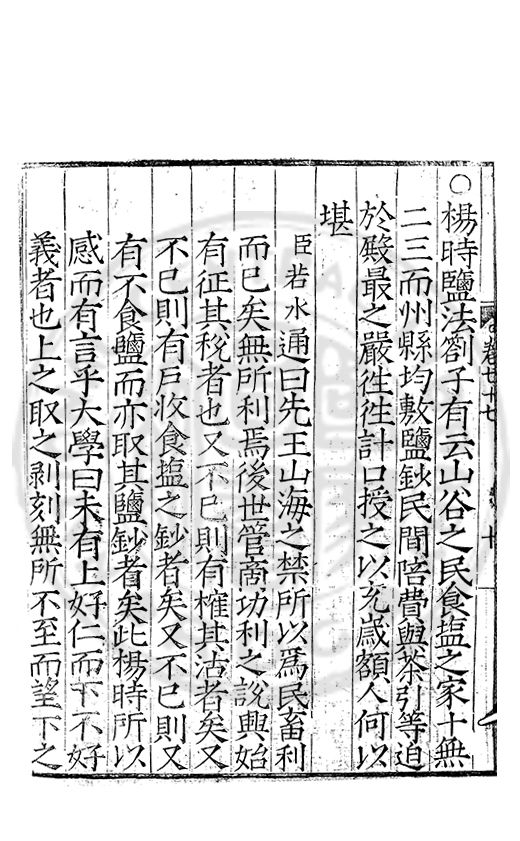 ○楊時鹽法劄子有云山谷之民食塩之家十無
二三而州縣均敷鹽鈔民間陪費與茶引等迫
於殿最之嚴徃徃計口授之以充歲額人何以
堪
臣若水通曰先王山海之禁所以爲民畜利
而已矣無所利焉後世管商功利之說興始
有征其稅者也又不已則有榷其沽者矣又
不已則有戶收食塩之鈔者矣又不已則又
有不食鹽而亦取其鹽鈔者矣此楊時所以
感而有言乎大學曰未有上好仁而下不好
義者也上之取之剥刻無所不至而望下之